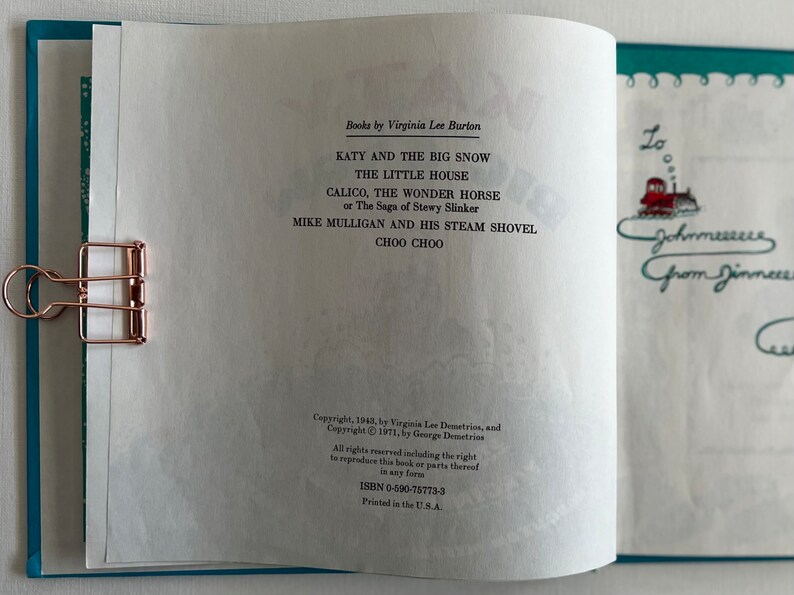 Books by Virginia Lee Burton
KATY AND THE BIG SNOW
THE LITTLE HOUSE
CALICO, THE WONDER HORSE
or The Saga of Stewy Slinker
MIKE MULLIGAN AND HIS STEAM SHOVEL
CHOO CHOO
Copyright, 1943, by Virginia Lee Demetrios, and
Copyright © 1971, by George Demetrios
All rights reserved including the right
to reproduce this book or parts thereof
in any form
ISBN 0-590-75773-3
Printed in the U.S.A.
To
from